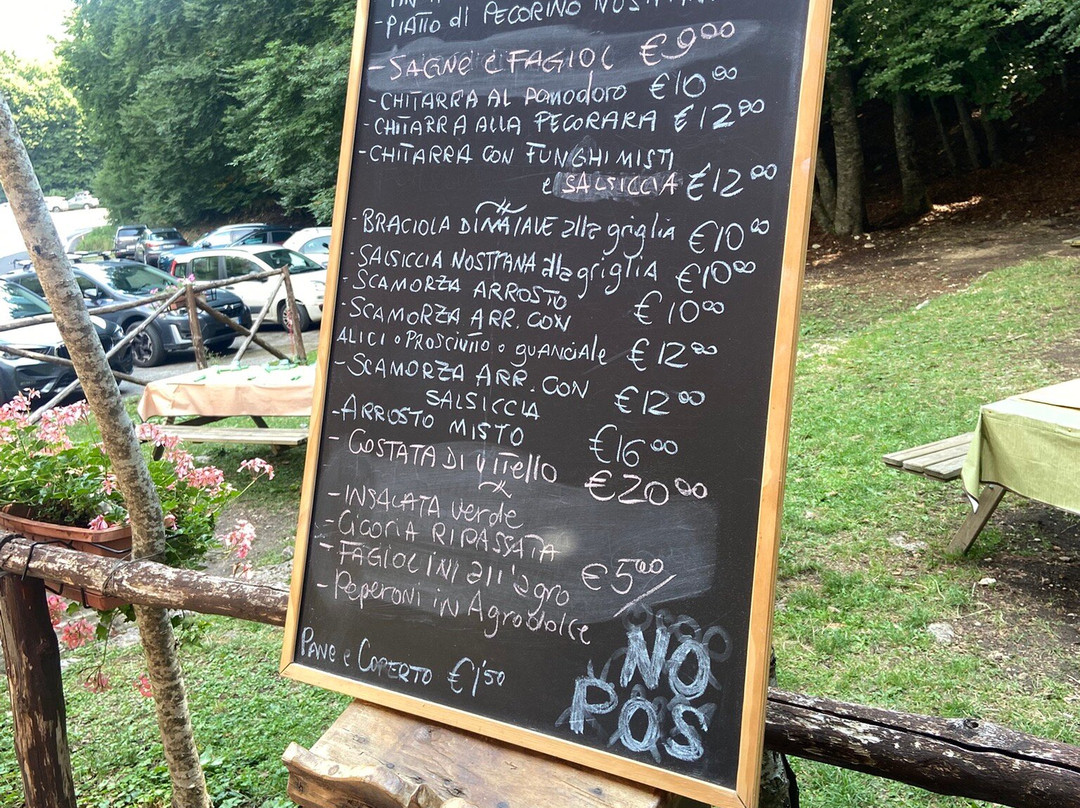 - PIATTO di PECORINO
- SAGNE e FAGIOLI €900
- CHITARRA AL POMODORO €1000
- CHITARRA ALLA PECORARA €12,00
- CHITARRA CON FUNGHI MISTI
e SALSICCIA €1200
- BRACIOLA DI MAIALE alla griglia €10,00
- SALSICCIA NOSTRANA alla griglia €10,00
- SCAMORZA ARROSTO €10,00
- SCAMORZA ARR. CON
ALICI o PROSCIUTTO o guanciale €12,00
- SCAMORZA ARR. CON
SALSICCIA €12,00
- ARROSTO MISTO €16,00
- COSTATA DI VITello €20,00
- INSALATA verde
- Cicoria RIPASSATA
- FAGIOLINI all'agro €5,00
- Peperoni in Agrodolce
PANE e COPERTO €1'50
NO
POS